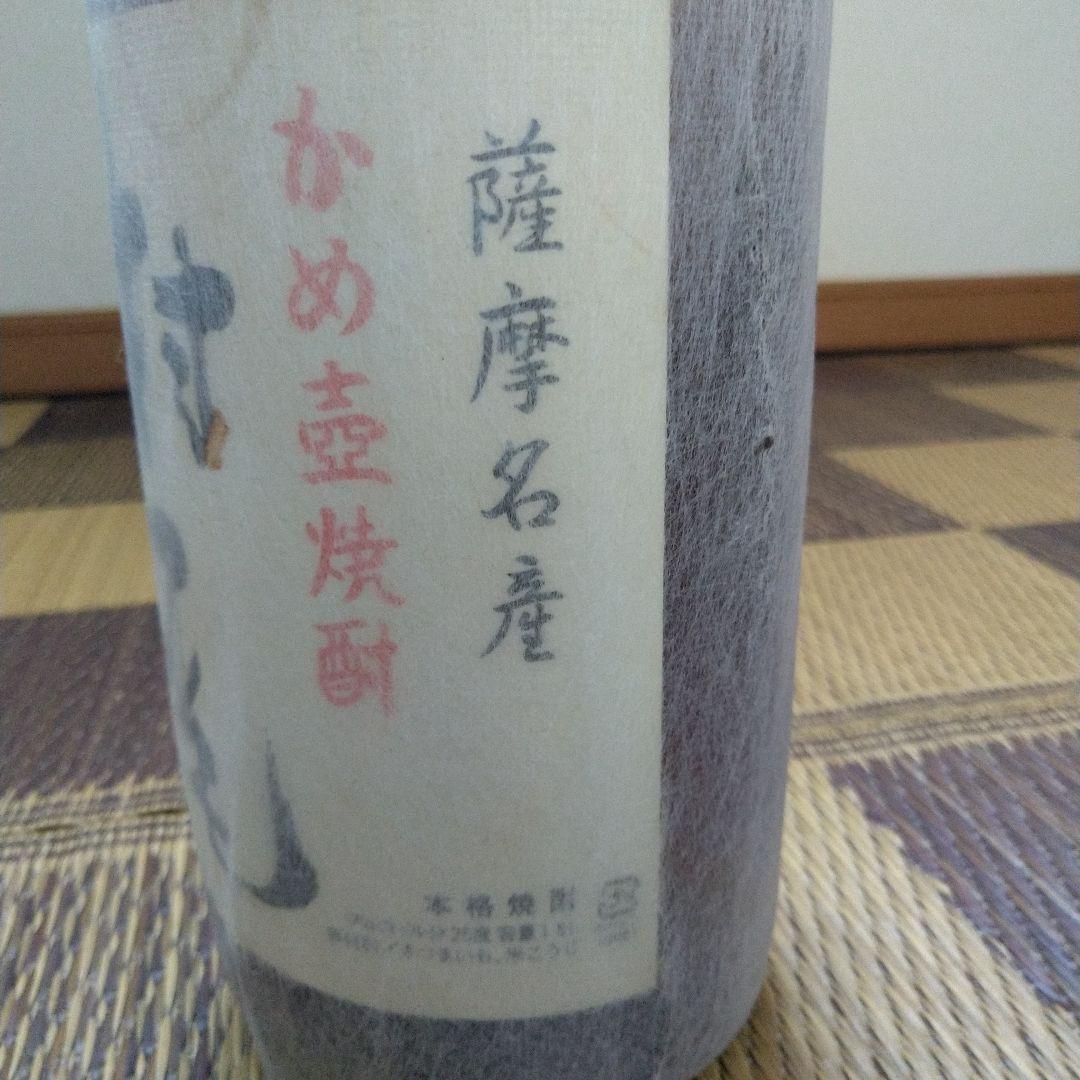 薩摩名産
かめ壺焼酎
村
本格焼酎
アルコール分25度 容量1.8l
原材料/さつまいも、米こうじ